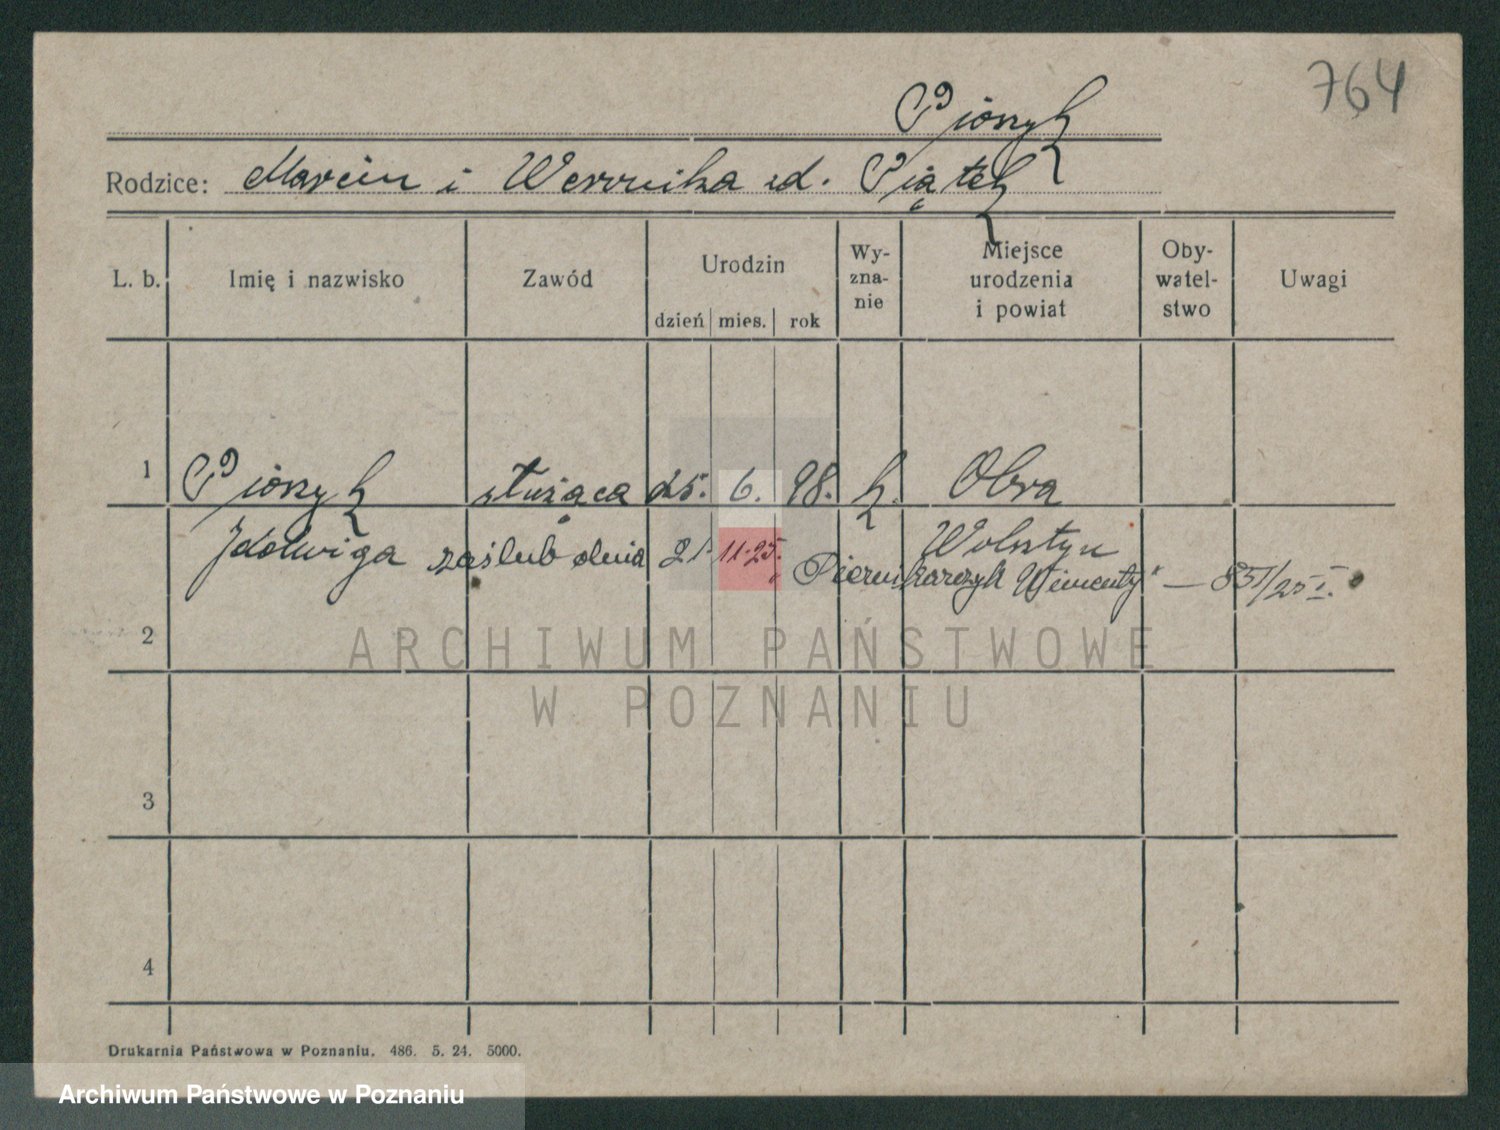 764
Pioszyk
Rodzice: Marcin i Weronika zd. Piątek
L. b. Imię i nazwisko Zawód Urodzin dzień mies. rok Wy-zna-nie Miejsce urodzenia i powiat Oby-watel-stwo Uwagi
1 Pioszyk służąca 25. 6. 98. k. Obra
Jadwiga Wolsztyn
zaślub dnia 21. 11. 25. Piernikarczyk Wincenty" — 851/25 I.
2
3
4
ARCHIWUM PAŃSTWOWE
W POZNANIU
Drukarnia Państwowa w Poznaniu. 486. 5. 24. 5000.
Archiwum Państwowe w Poznaniu